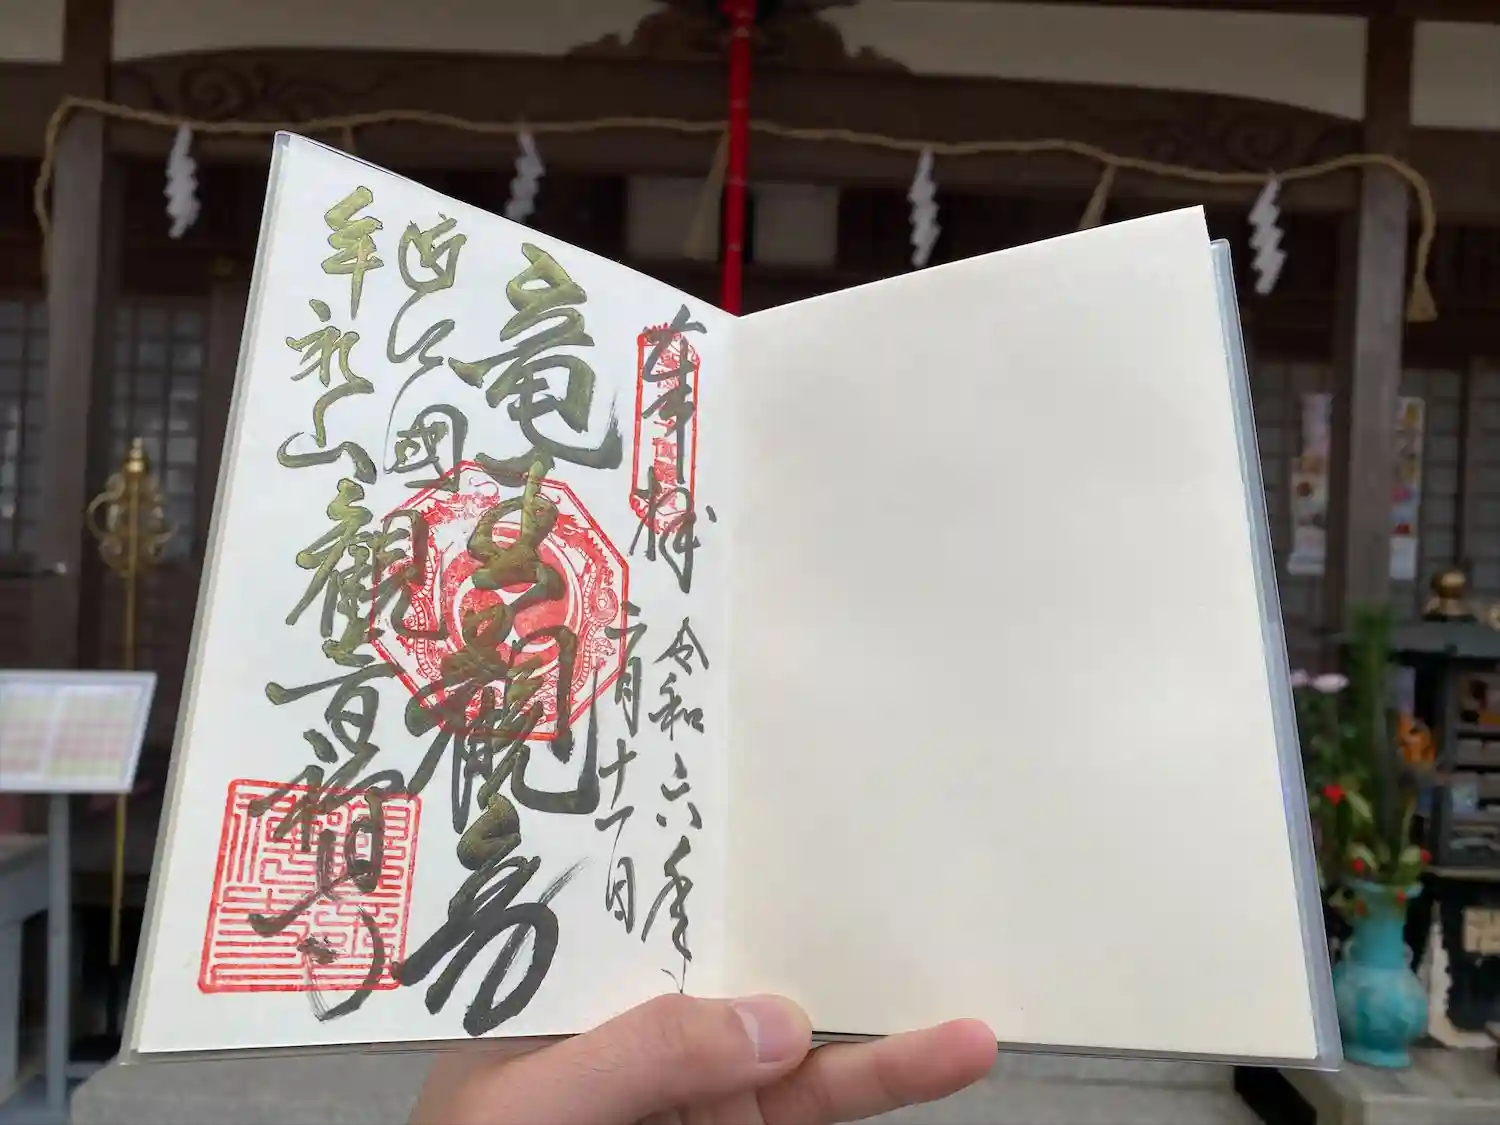 奉拝
令和六年
二月十一日
竜 観音
西 国
牟礼山観音禅寺